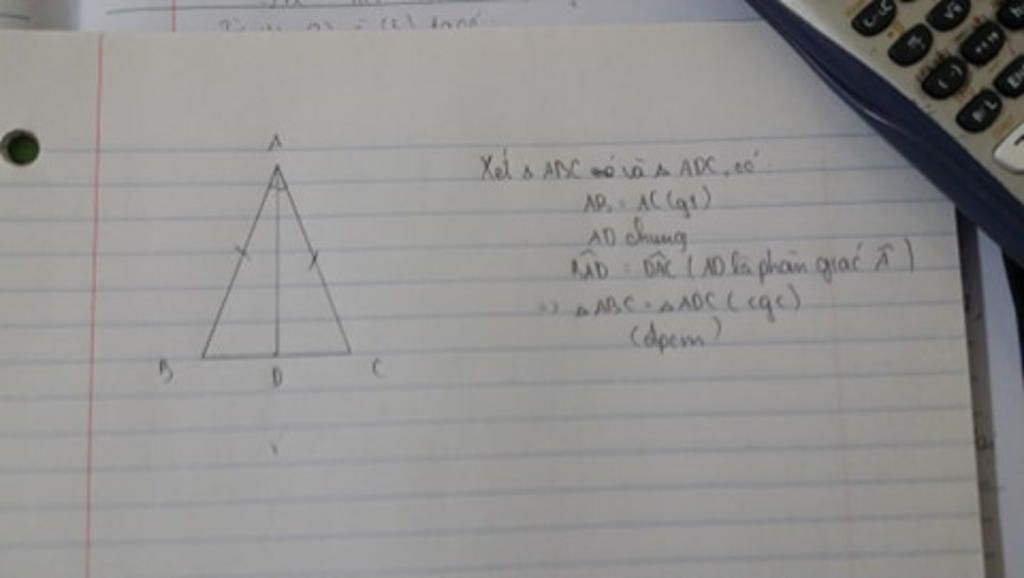 A
B
D
C
Xét Δ ABC và Δ ADC, có
AB = AC (gt)
AD chung
BAD = DAC (AD là phân giác Â)
=> Δ ABC = Δ ADC (cgc)
(đpcm)